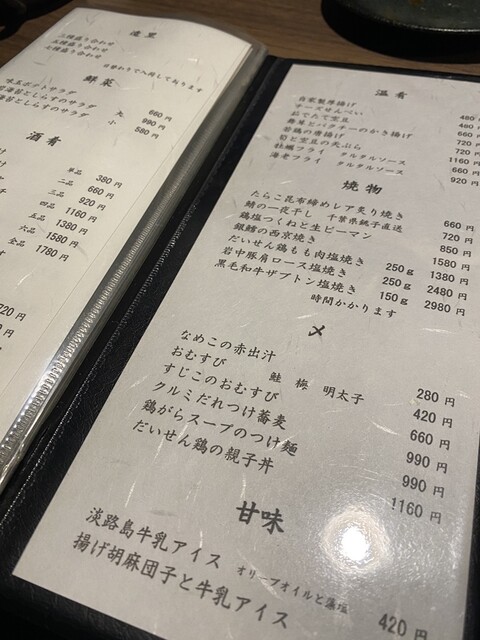 造里
三種盛り合わせ
五種盛り合わせ
七種盛り合わせ
日替わりで入荷しております
鮮菜
味玉ポテトサラダ
海苔としらすのサラダ 大 990円
海苔としらすのサラダ 小 580円
660円
酒肴
単品 380円
二品 660円
三品 920円
四品 1160円
五品 1380円
六品 1580円
全品 1780円
720円
温肴
自家製厚揚げ 480円
チーズせんべい 480円
おでたて空豆
海老とパクチーのかき揚げ 660円
若鶏の唐揚げ 720円
筍と空豆の天ぷら 720円
牡蠣フライ タルタルソース 1160円
海老フライ タルタルソース 660円
920円
焼物
たらこ昆布締めレア炙り焼き 660円
鯖の一夜干し 千葉県銚子直送 720円
鶏塩つくねと生ピーマン 850円
銀鱈の西京焼き 1580円
だいせん鶏もも肉塩焼き 250g 1380円
岩中豚肩ロース塩焼き 250g 2480円
黒毛和牛ザブトン塩焼き 150g 2980円
時間かかります
〆
なめこの赤出汁 280円
おむすび 鮭 梅 明太子 420円
すじこのおむすび 660円
クルミだれつけ蕎麦 990円
鶏がらスープのつけ麺 990円
だいせん鶏の親子丼 1160円
甘味
淡路島牛乳アイス オリーブオイルと藻塩 420円
揚げ胡麻団子と牛乳アイス